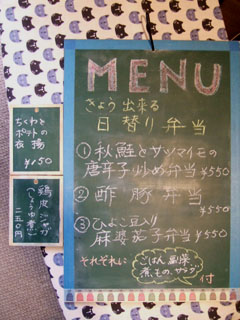 MENU
きょう出来る
日替り弁当
①秋鮭とサツマイモの
唐辛子炒め弁当 ¥550
②酢豚弁当
¥550
③ひよこ豆入り
麻婆茄子弁当 ¥550
それぞれに
ごはん、副菜、
煮もの、サラダ
付
ちくわと
ポテトの
衣揚
¥150
鶏皮ジャガ
(しょうゆ煮)
二五〇円